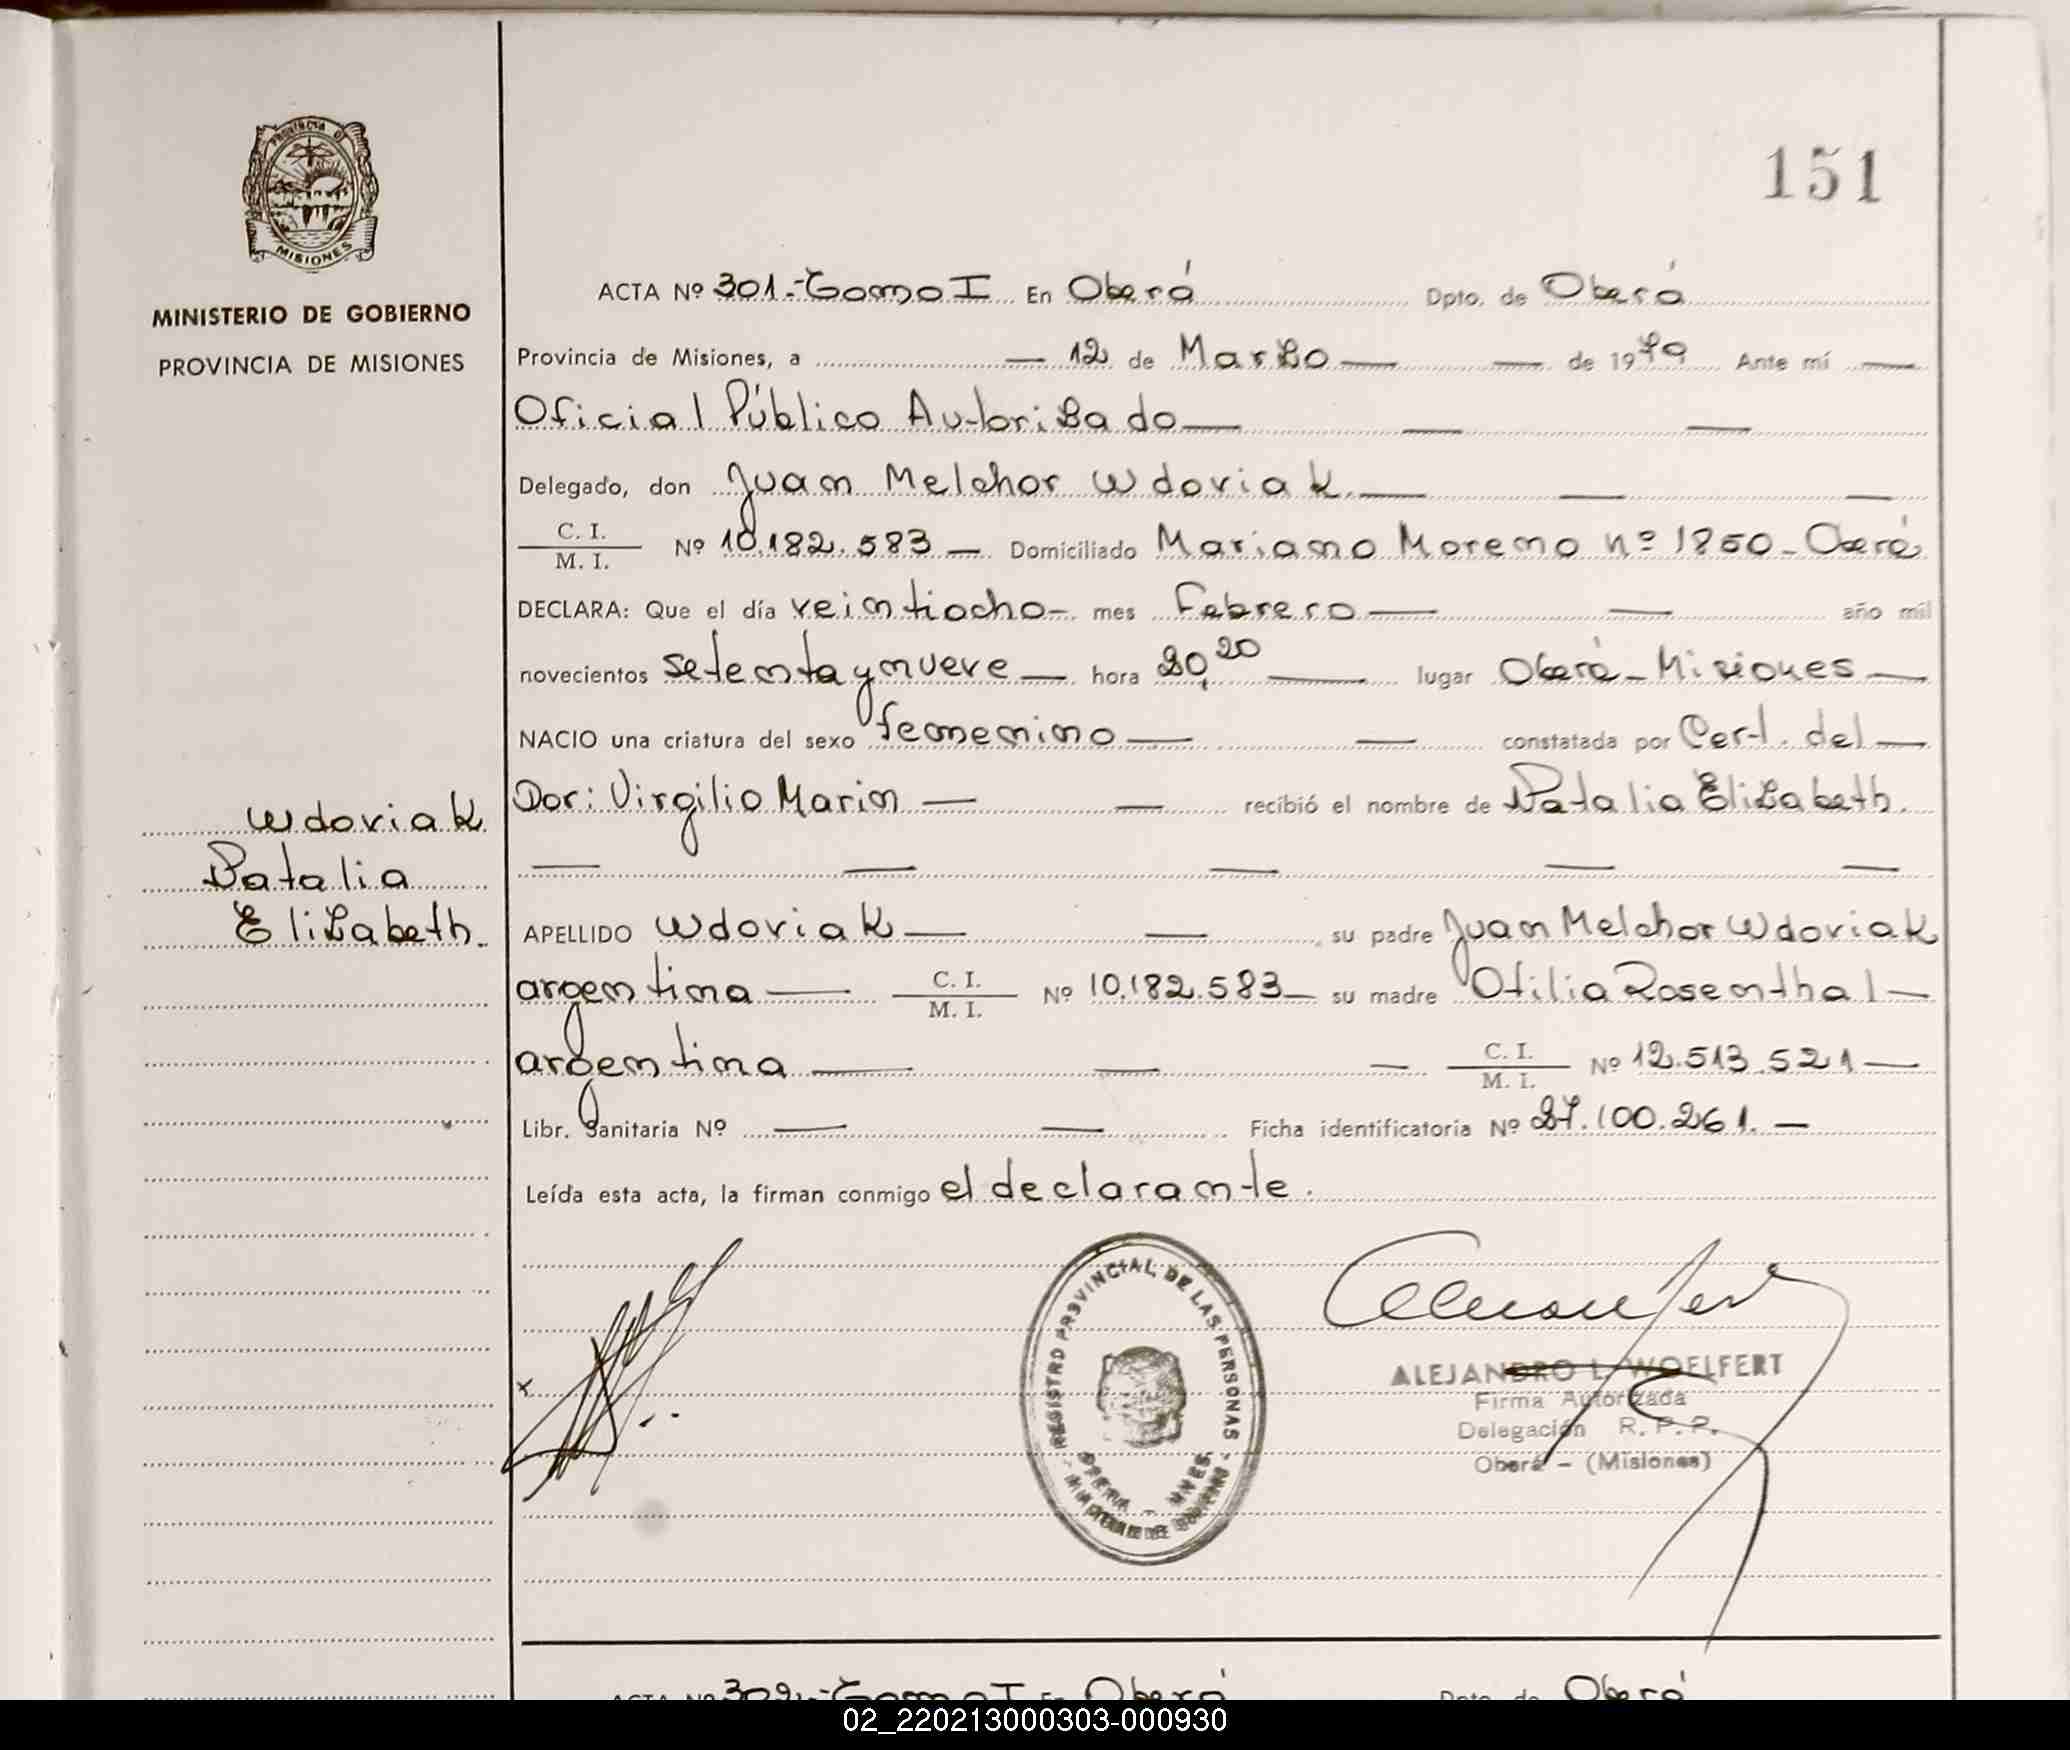 PROVINCIA DE
MISIONES
MINISTERIO DE GOBIERNO
PROVINCIA DE MISIONES
151
ACTA Nº 301.-Tomo I En Oberá Dpto. de Oberá
Provincia de Misiones, a — 12 de Marzo — — de 1979 Ante mí —
Oficial Público Autorizado — — —
Delegado, don Juan Melchor Wdoviak. — — —
C. I.
M. I. Nº 10.182.583 — Domiciliado Mariano Moreno nº 1850 - Oberá
DECLARA: Que el día veintiocho — mes Febrero — — año mil
novecientos setenta y nueve — hora 20,20 — lugar Oberá - Misiones —
NACIO una criatura del sexo femenino — — constatada por Cert. del —
Dor: Virgilio Marin — — recibió el nombre de Natalia Elizabeth.
— — — — —
Wdoviak
Natalia
Elizabeth.
APELLIDO Wdoviak — — , su padre Juan Melchor Wdoviak
argentina — C. I.
M. I. Nº 10.182.583 — su madre Otilia Rosenthal —
argentina — — — C. I.
M. I. Nº 12.513.521 —
Libr. Sanitaria Nº — — Ficha identificatoria Nº 27.100.261. —
Leída esta acta, la firman conmigo el declarante.
x
REGISTRO PROVINCIAL DE LAS PERSONAS
ALEJANDRO L. WOELFERT
Firma Autorizada
Delegación R. P. P.
Oberá - (Misiones)
ACTA Nº 302.-Tomo I En Oberá Dpto. de Oberá
02_220213000303-000930